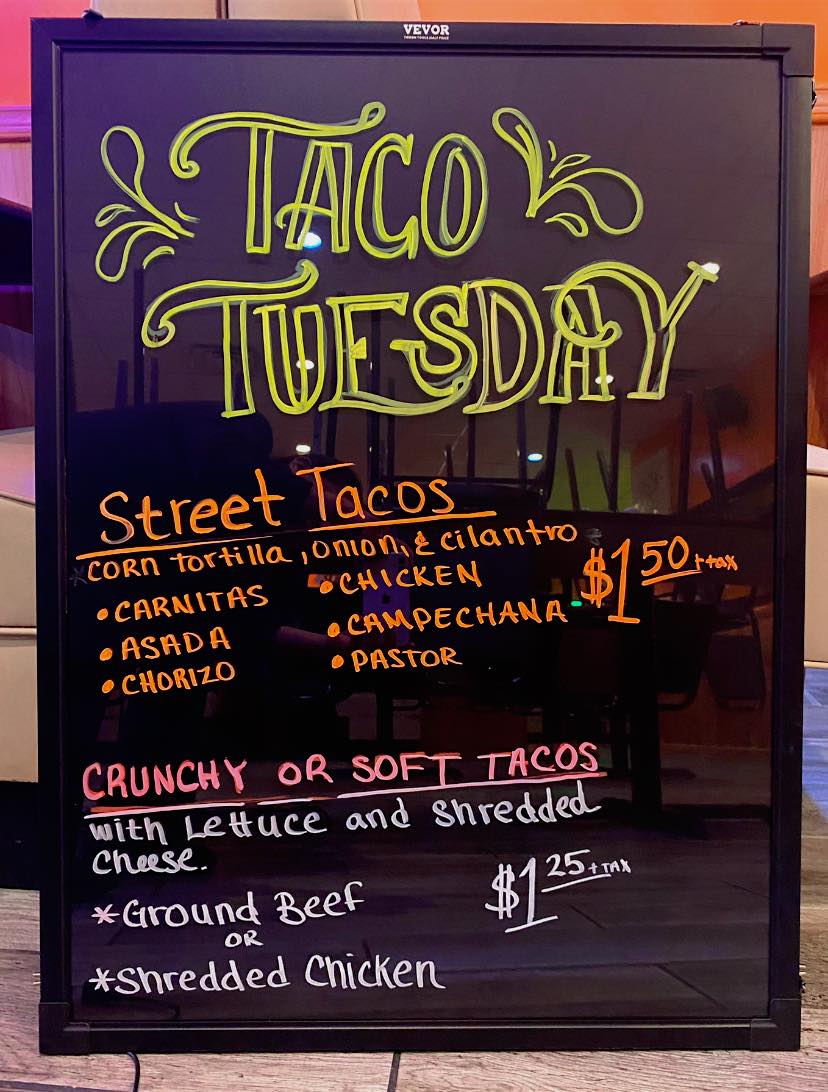 VEVOR
TACO
TUESDAY
Street Tacos
*corn tortilla, onion, & cilantro
• CARNITAS
• ASADA
• CHORIZO
• CHICKEN
• CAMPECHANA
• PASTOR
$1 50 + tax
CRUNCHY OR SOFT TACOS
with Lettuce and Shredded
Cheese.
*Ground Beef
OR
*Shredded Chicken
$1 25 + TAX